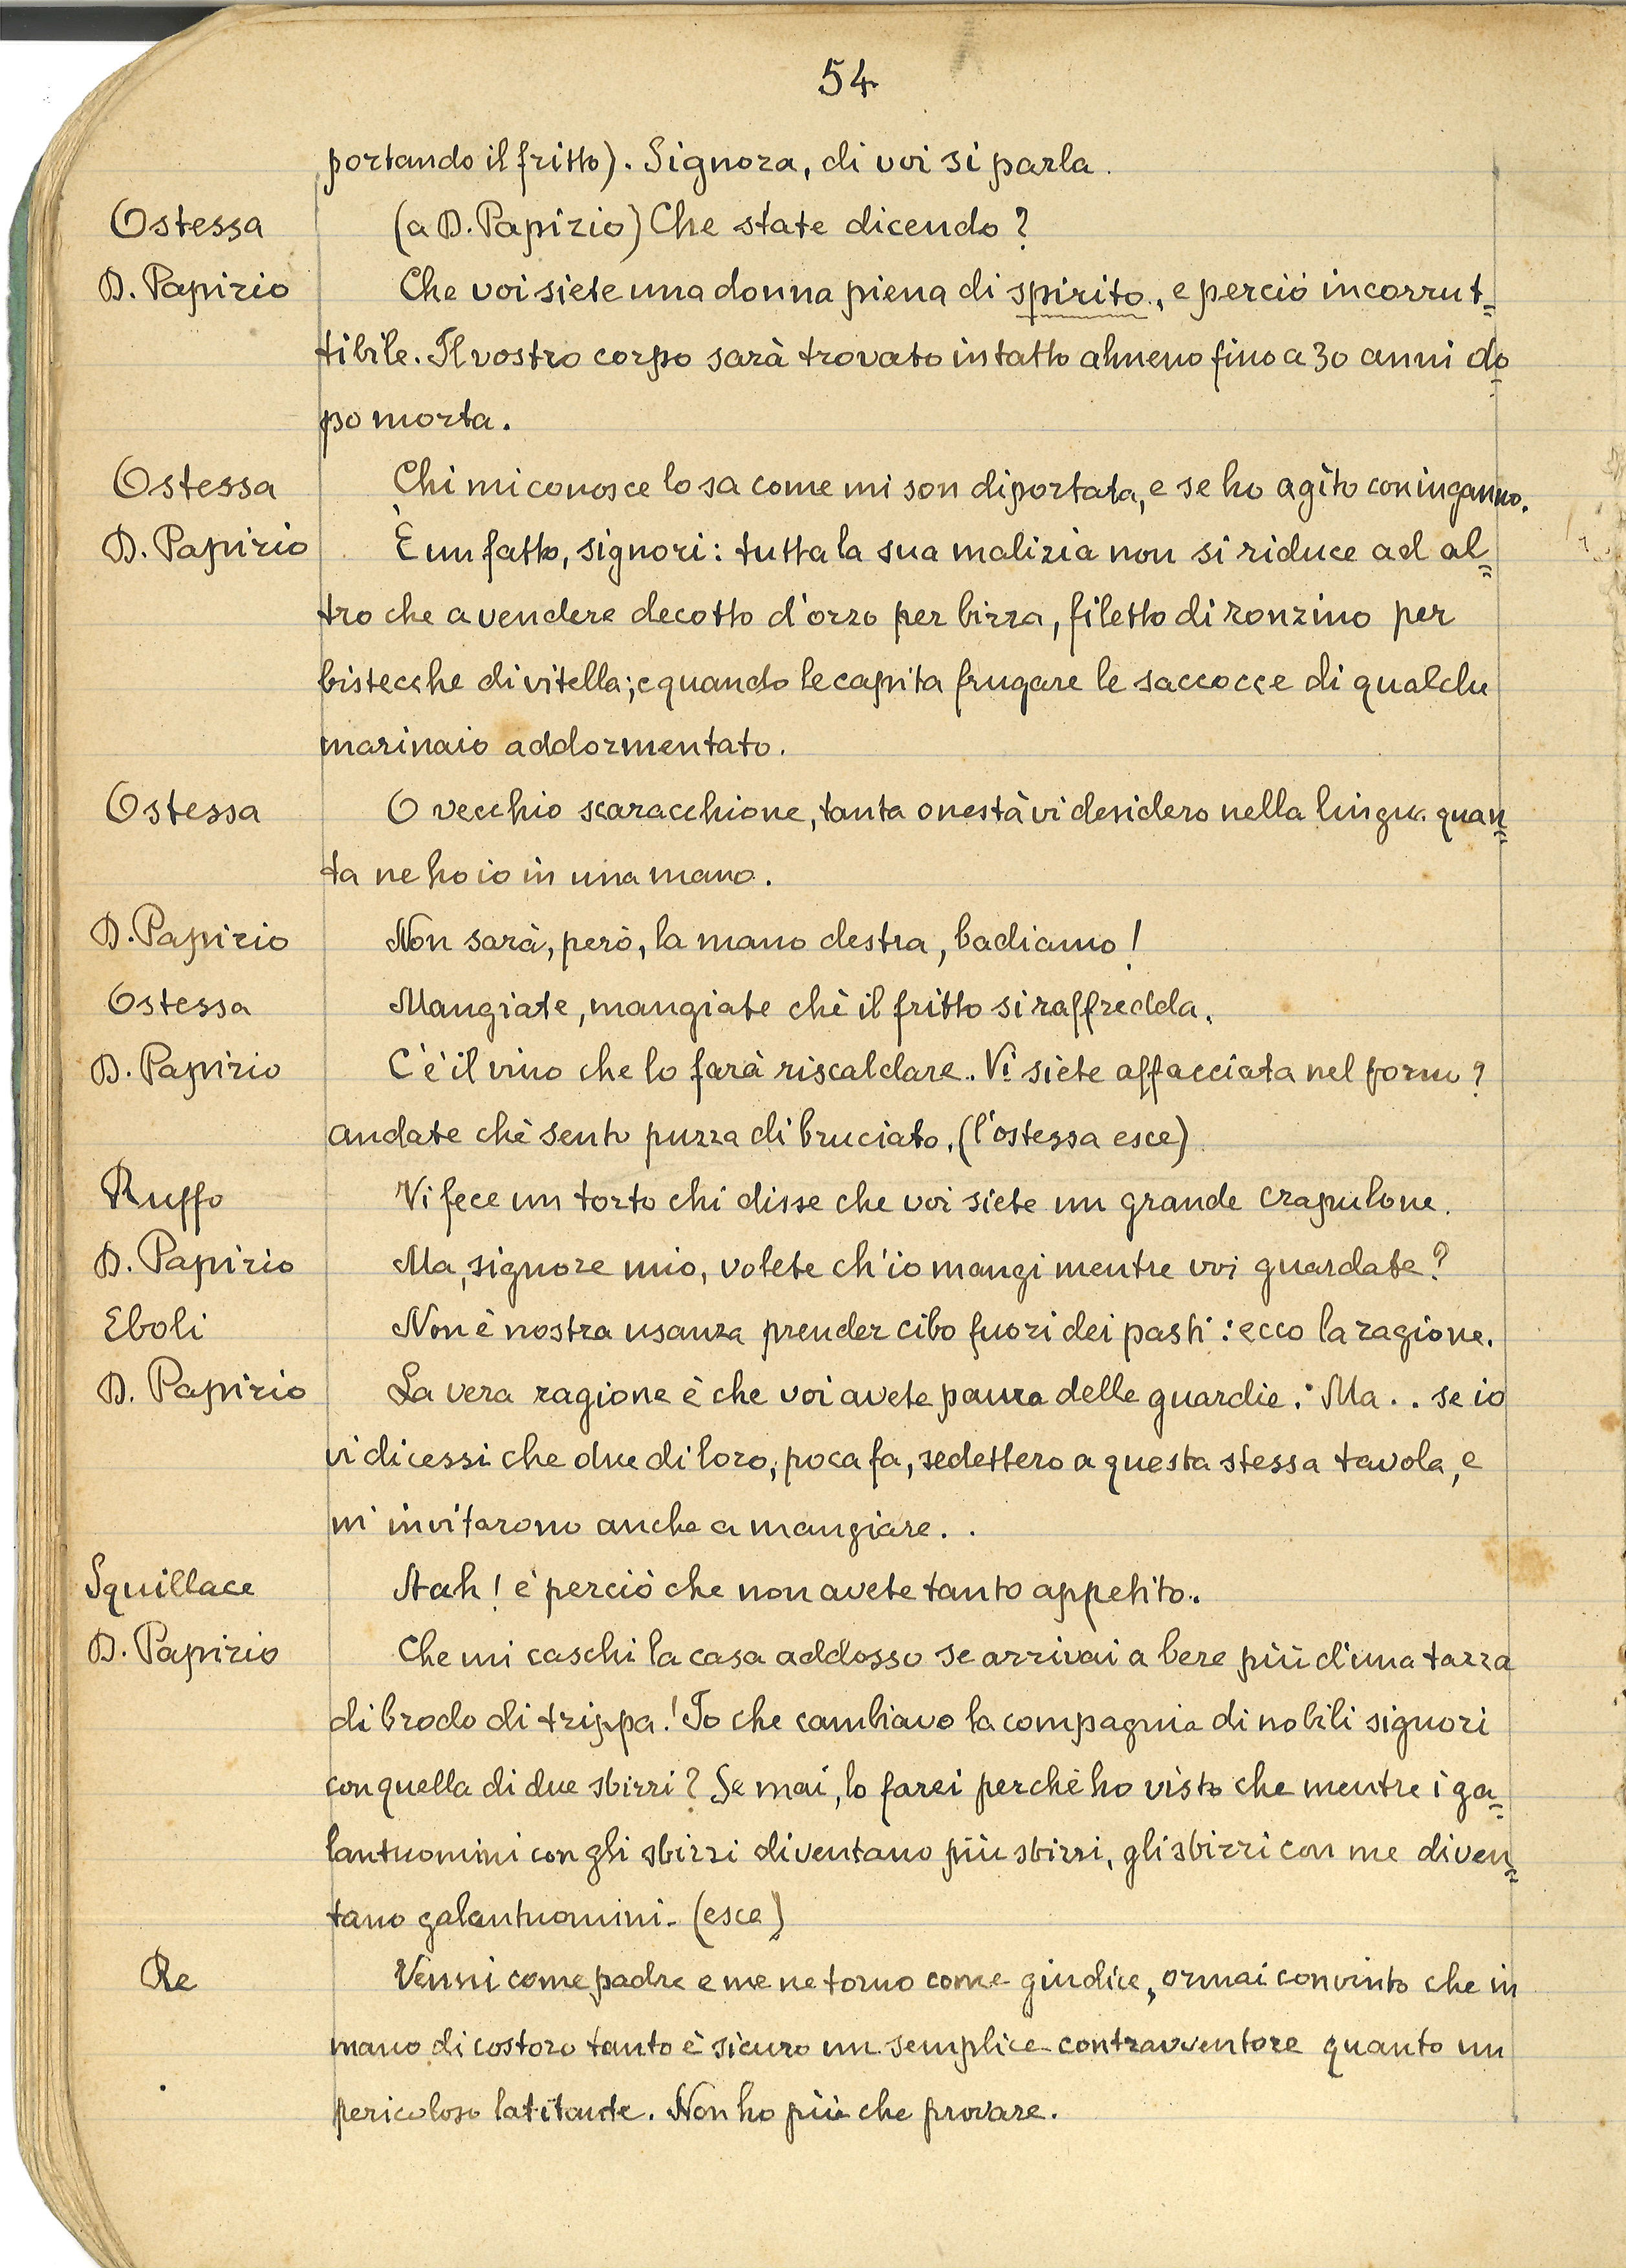 54
portando il fritto). Signora, di voi si parla.
Ostessa (a D. Papirio) Che state dicendo?
D. Papirio Che voi siete una donna piena di spirito, e perciò incorrut=
tibile. Il vostro corpo sarà trovato intatto almeno fino a 30 anni do=
po morta.
Ostessa Chi mi conosce lo sa come mi son diportata, e se ho agito con inganno.
D. Papirio È un fatto, signori: tutta la sua malizia non si riduce ad al=
tro che a vendere decotto d'orzo per birra, filetto di ronzino per
bistecche di vitella; e quando le capita frugare le saccocce di qualche
marinaio addormentato.
Ostessa O vecchio scaracchione, tanta onestà vi desidero nella lingua quan=
ta ne ho io in una mano.
D. Papirio Non sarà, però, la mano destra, badiamo!
Ostessa Mangiate, mangiate chè il fritto si raffredda.
D. Papirio C'è il vino che lo farà riscaldare. Vi siete affacciata nel forno?
andate chè sento puzza di bruciato. (l'ostessa esce)
Ruffo Vi fece un torto chi disse che voi siete un grande crapulone.
D. Papirio Ma, signore mio, volete ch'io mangi mentre voi guardate?
Eboli Non è nostra usanza prender cibo fuori dei pasti: ecco la ragione.
D. Papirio La vera ragione è che voi avete paura delle guardie. Ma.. se io
vi dicessi che due di loro, poca fa, sedettero a questa stessa tavola, e
mi invitarono anche a mangiare..
Squillace Aah! è perciò che non avete tanto appetito.
D. Papirio Che mi caschi la casa addosso se arrivai a bere più d'una tazza
di brodo di trippa! Io che cambiavo la compagnia di nobili signori
con quella di due sbirri? Se mai, lo farei perchè ho visto che mentre i ga=
lantuomini con gli sbirri diventano più sbirri, gli sbirri con me diven=
tano galantuomini. (esce)
Re Venni come padre e me ne torno come giudice, ormai convinto che in
mano di costoro tanto è sicuro un semplice contravventore quanto un
pericoloso latitante. Non ho più che provare.